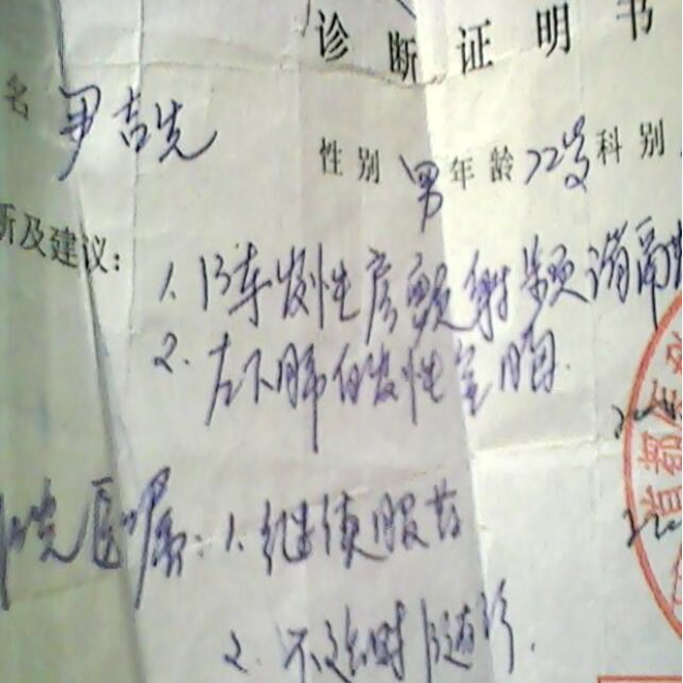 诊断证明书
名 尹吉先 性别 男 年龄 72岁 科别
断及建议：
1. 阵发性房颤射频消融
2. 左下肺自发性气胸.
院医嘱：1. 继续服药
2. 不适时随诊.
都